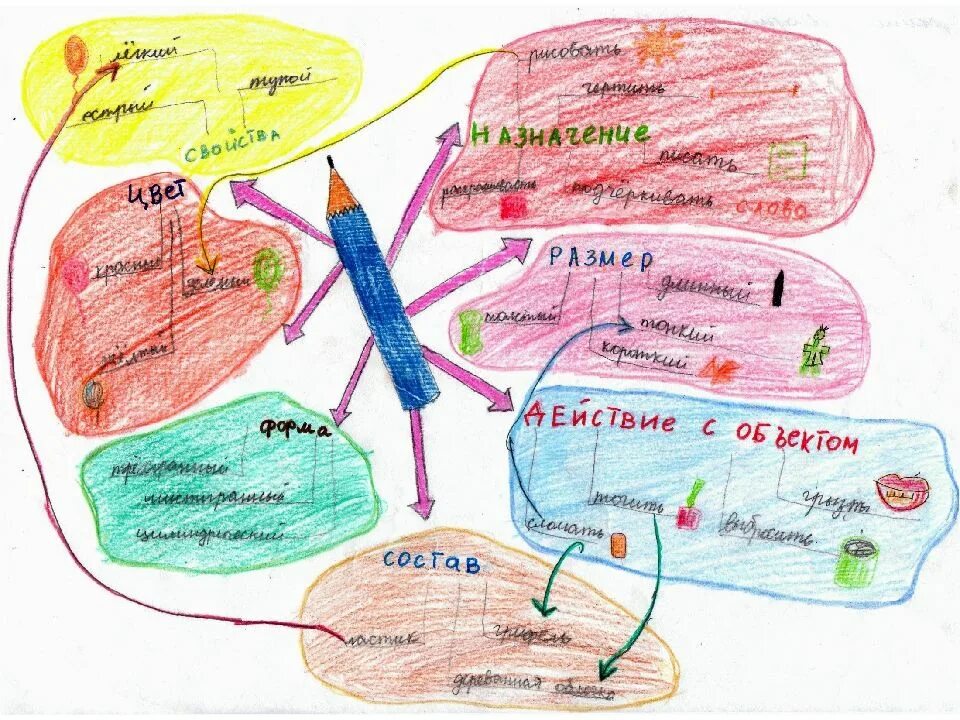 лёгкий
тупой
острый
СВОЙСТВА
рисовать
чертить
НАЗНАЧЕНИЕ
писать
раскрашивать
подчёркивать
СЛОВО
ЦВЕТ
красный
зелёный
жёлтый
РАЗМЕР
длинный
толстый
тонкий
короткий
ФОРМА
трёхгранный
шестигранный
цилиндрический
ДЕЙСТВИЕ С ОБЪЕКТОМ
грызть
точить
сломать
выбросить
СОСТАВ
ластик
грифель
деревянная оболочка